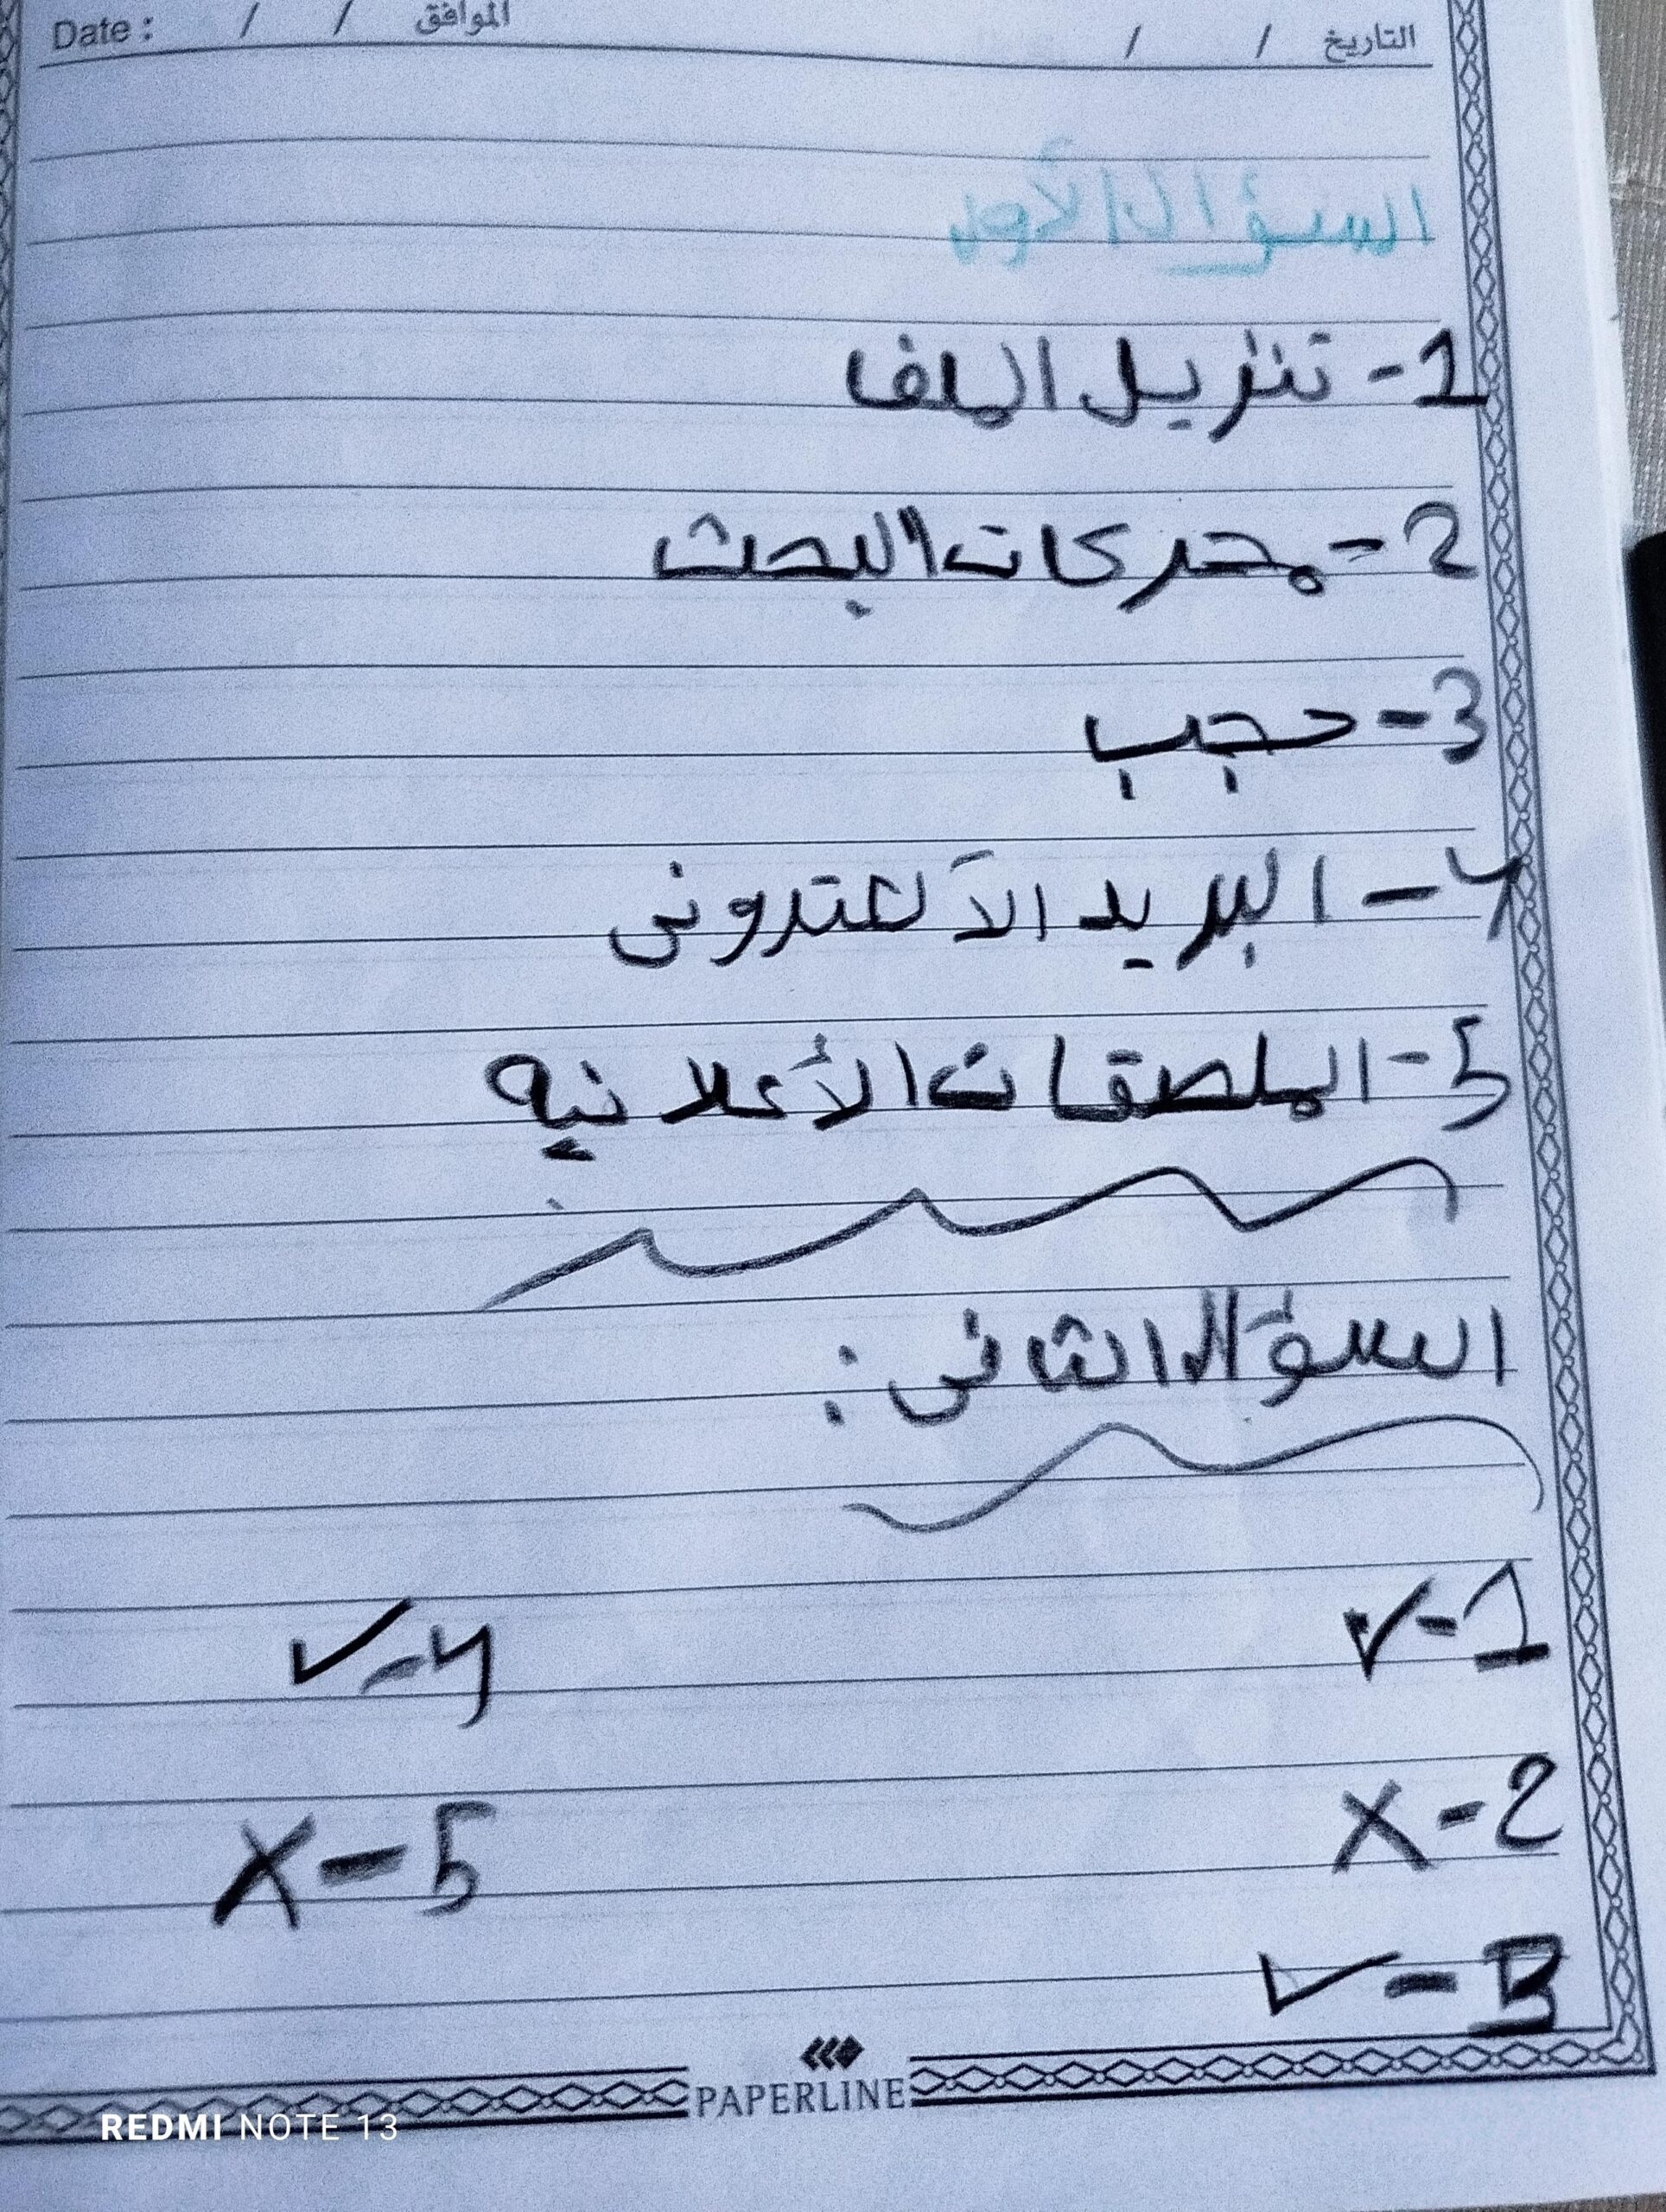 التاريخ / / الموافق / / Date :
السؤال الأول
1- تنزيل الملفا
2- محركات البحث
3- حجب
4- البريد الألكترونى
5- الملصقات الأعلانيه
السؤال الثانى :
1- ✓ 4- ✓
2- x 5- x
3- ✓
PAPERLINE
REDMI NOTE 13